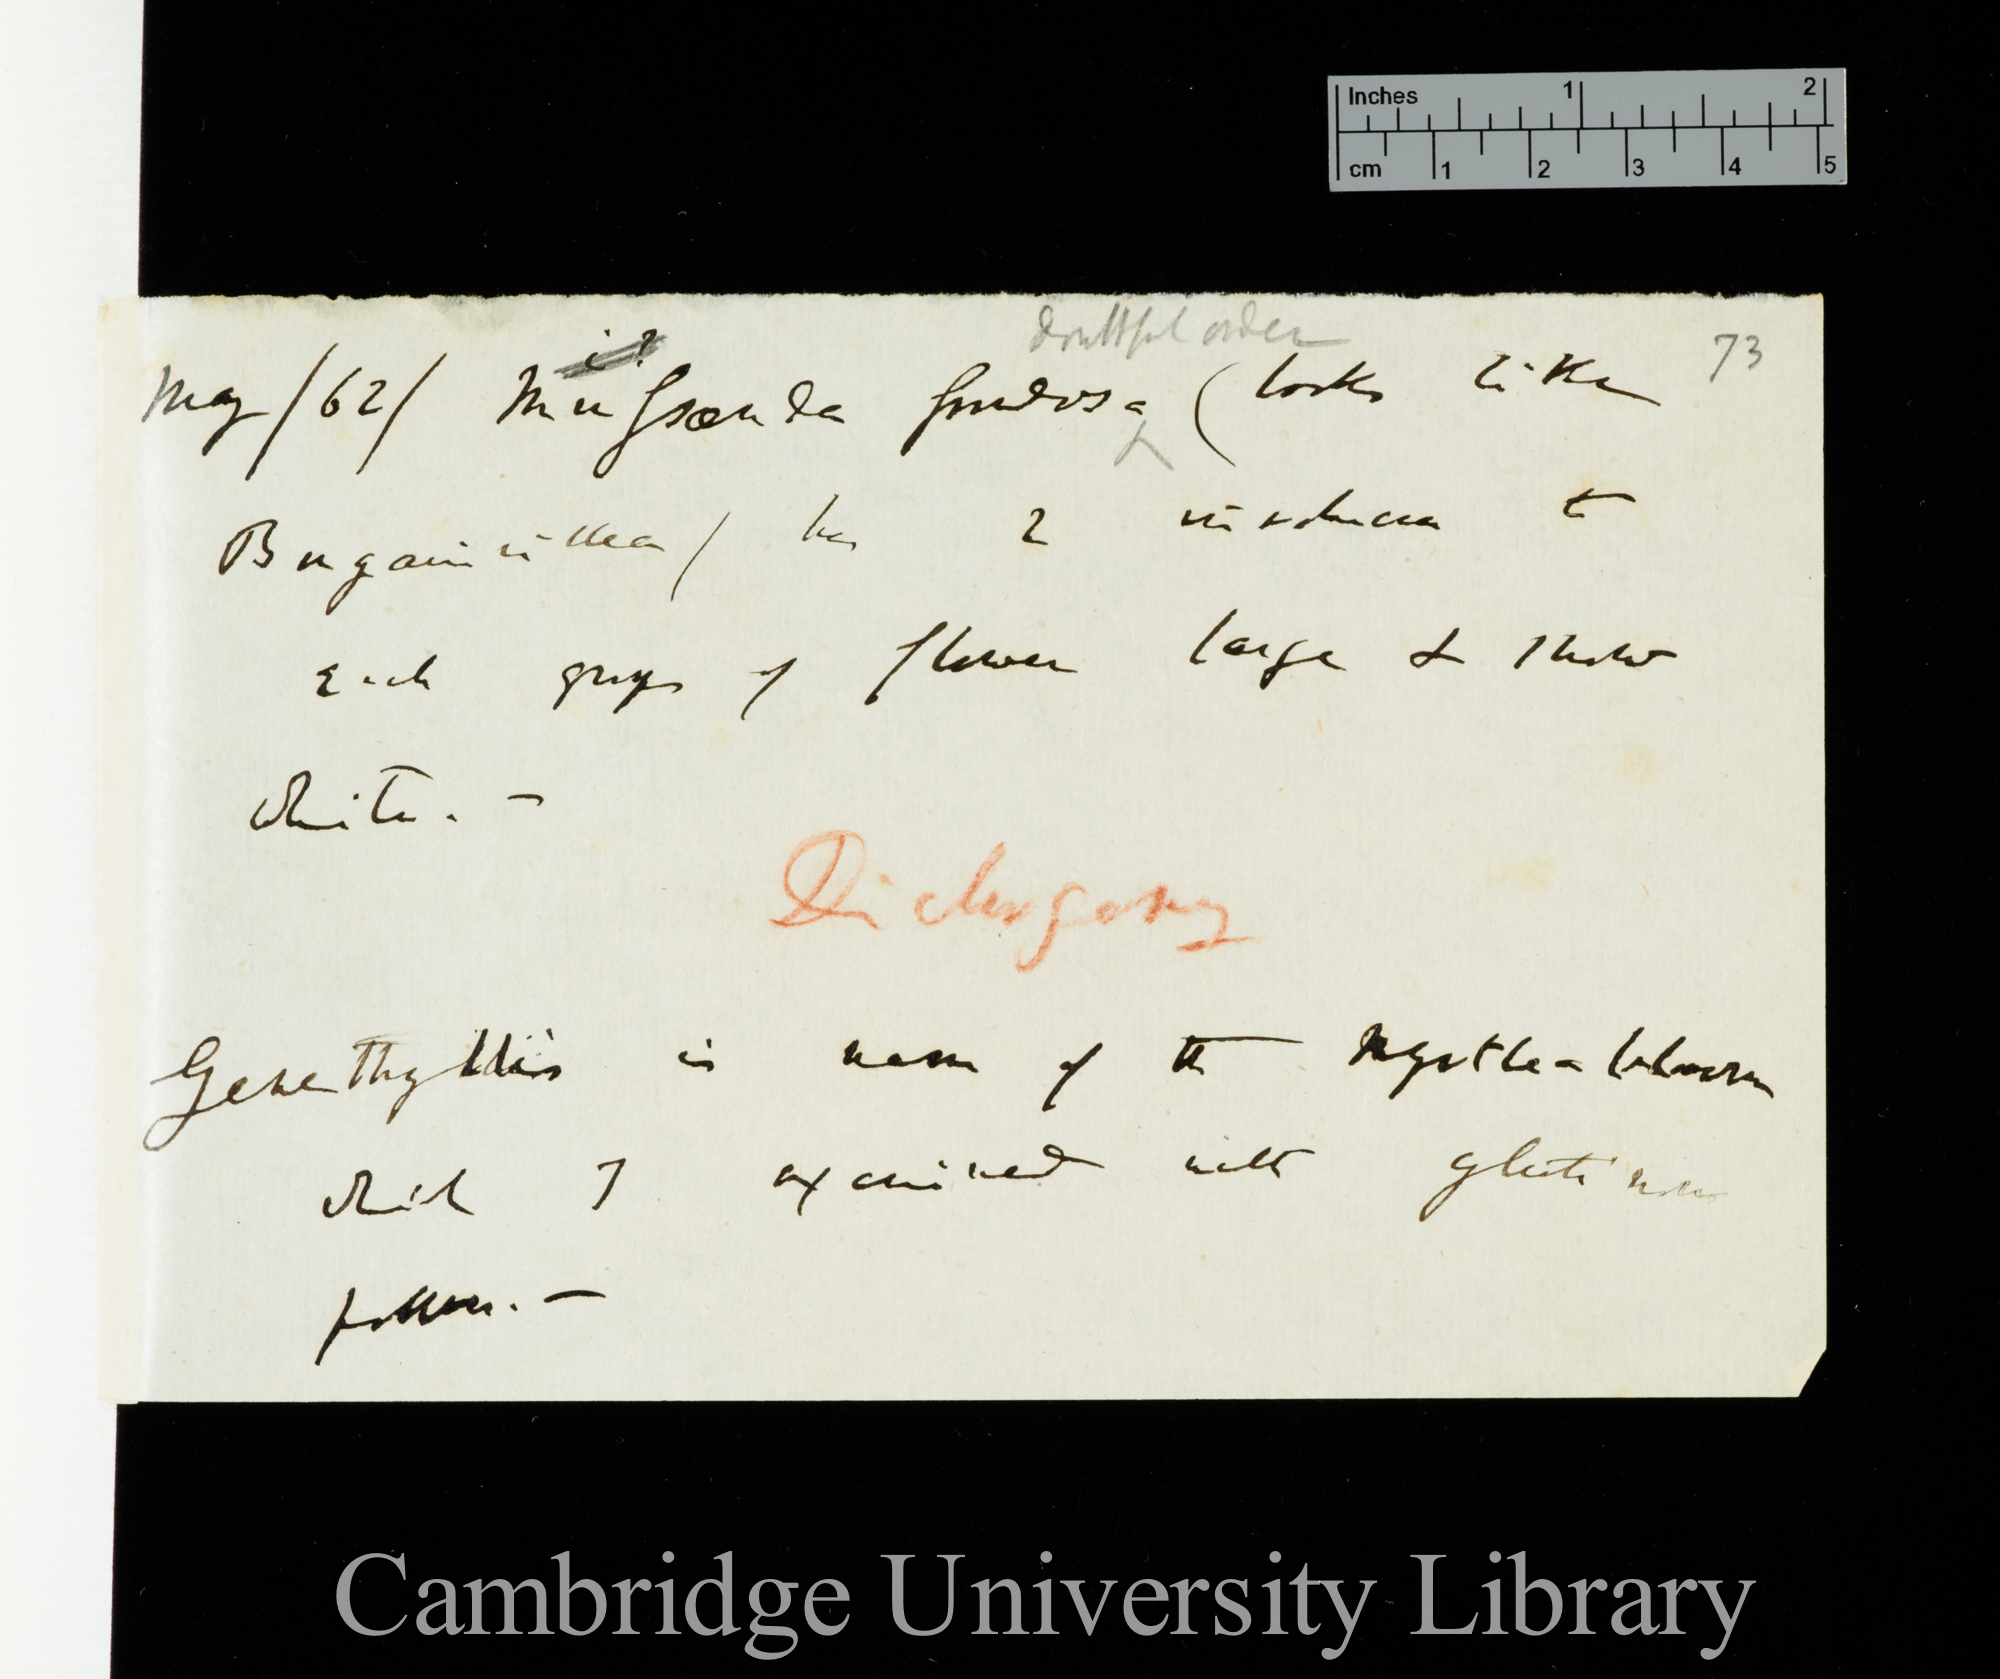 Inches 1 2
cm 1 2 3 4 5
doubtful order
73
i?
May/62/ Mussænda frondosa (looks like
Bugainvillea) has 2 involucra to
each group of flower large & snow
white. —
Dichogamy
Genethyllis is name of the Myrtle-a
which I examined with glutinous
pollen. —
Cambridge University Library